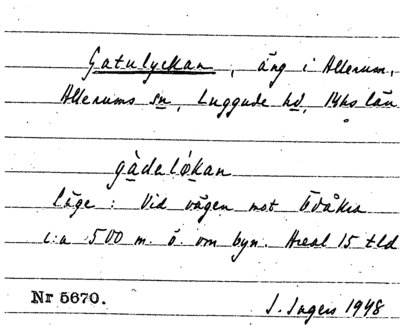 Gatulyckan, äng i Allerum,
Allerums sn, Luggude hd, Mhs län
gàdalø̀kan
Läge: Vid vägen mot Ödåkra
c:a 500 m. ö. om byn. Areal 15 tld
Nr 5670.
I. Ingers 1948